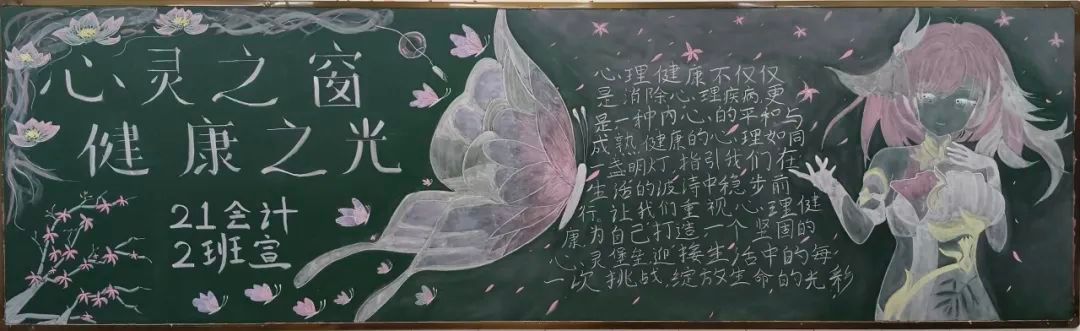 心灵之窗
健康之光
21会计
2班宣
心理健康不仅仅
是消除心理疾病,更
是一种内心的平和与
成熟,健康的心理如同
一盏明灯,指引我们在
生活的波涛中稳步前
行,让我们重视心理健
康为自己打造一个坚固的
心灵堡垒迎接生活中的每
一次挑战,绽放生命的光彩